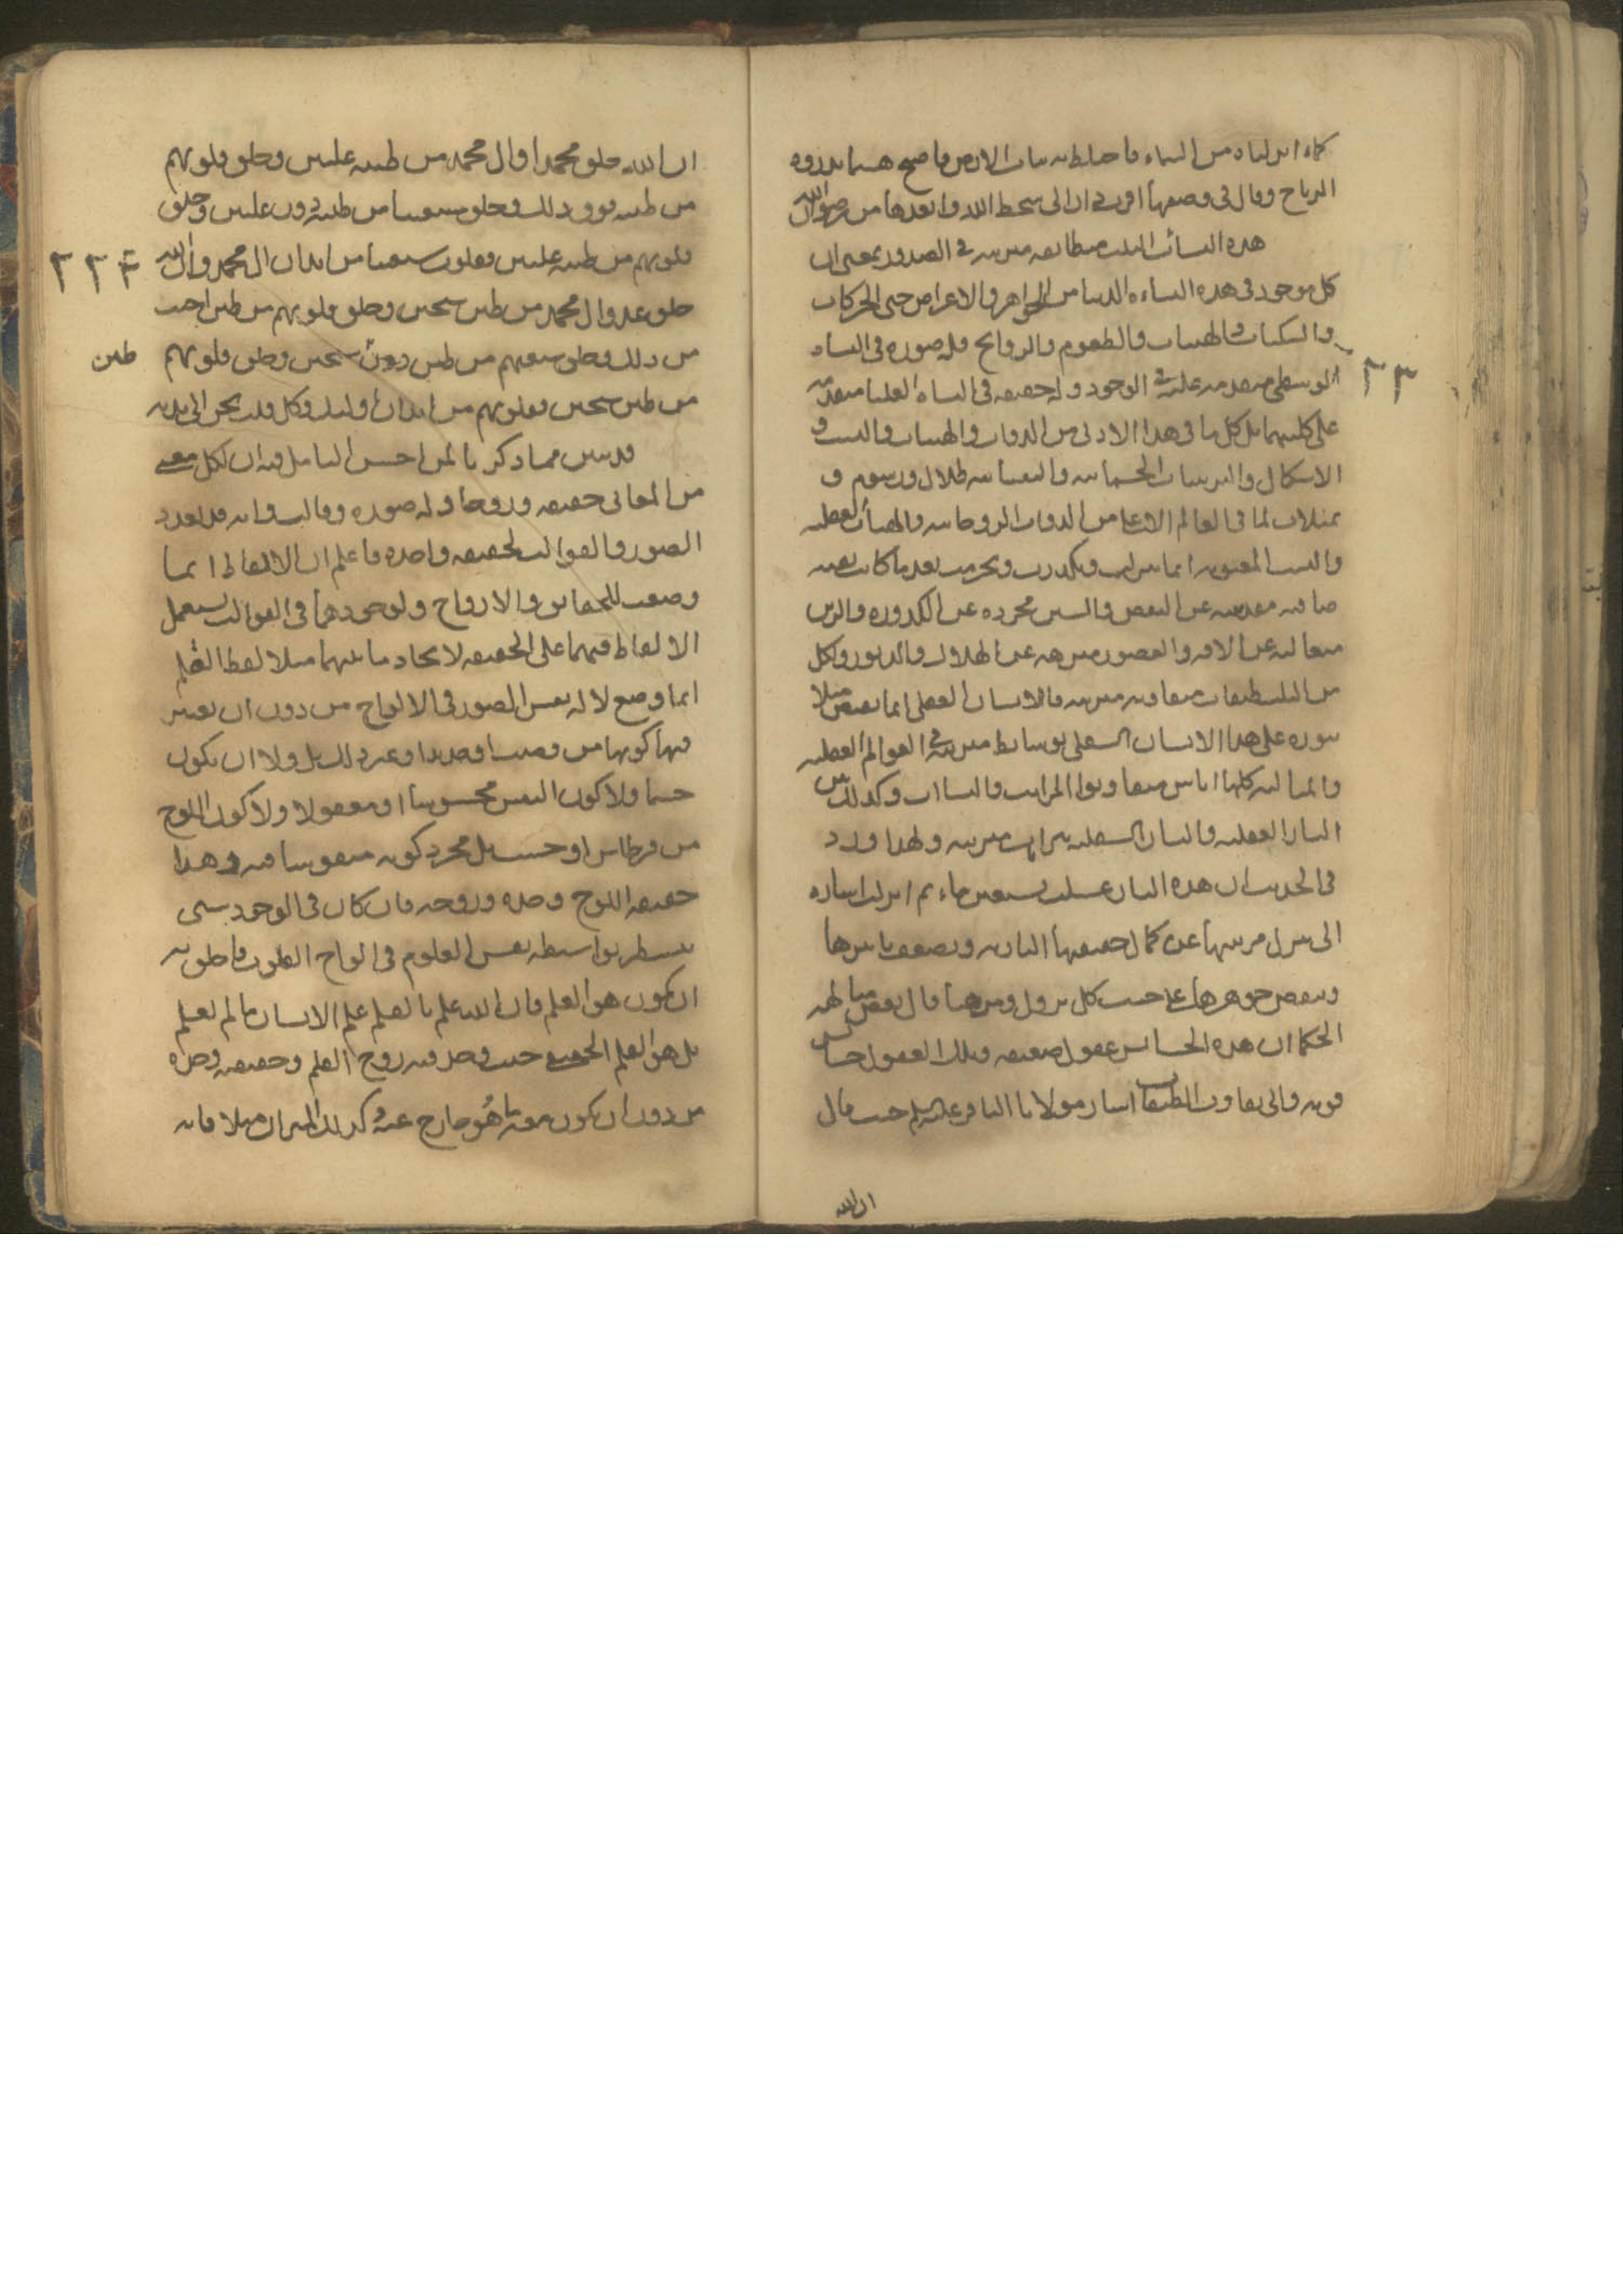 كماء انزلناه من السماء فاختلط به نبات الارض فاصبح هشيما تذروه
الرياح وقال في وصفها اقرب دار الى سخط الله وابعدها من رضوان الله
هذه النشات الثلث متطابقه مترتبه في الصدور بمعنى ان
كل موجود في هذه النشاه الدنيا من الجواهر والاعراض حتى الحركات
والسكنات والهيئات والطعوم والروايح فله صوره في النشاه
الوسطى متقدمه عليه في الوجود وله حقيقه في النشاه العليا متقدمه
على كليهما بل كل ما في هذا الادنى من الذوات والهيئات والنسب و
الاشكال والترتيبات الجسمانيه والنفسانيه ظلال ورسوم و
تمثلات لما في العالم الاعلى من الذوات الروحانيه والهيئات العقليه
والنسب المعنويه انما تنزلت وتكدرت وتجرمت بعد ما كانت نقيه
صافيه مقدسه عن النقص والشين مجرده عن الكدوره والرين
متعاليه عن الافه والقصور منزهه عن الهلاك والدثور ولكل
من الثلث طبقات متفاوته مترتبه فالانسان العقلي انما يفيض مثلا
نوره على هذا الانسان السفلي بوسايط مترتبه في العوالم العقليه
والمثاليه كلها اناس متفاوتوا المراتب والنشات وكذلك بين
النار العقليه والنار السفليه نيرات مترتبه ولهذا ورد
في الحديث ان هذه النار غسلت بسبعين ماء ثم انزلت اشاره
الى تنزل مرتبتها عن كمال حقيقتها الناريه وتضعف تاثيرها
وتنقص جوهرها على حسب كل نزول ومن هنا قال بعض متالهه
الحكما ان هذه الحسايس عقول ضعيفه وتلك العقول حسايس
قويه والى تفاوت الطبقات اشار مولانا الباقر عليه السلم حيث قال
ان الله
٢٢٣
ان الله خلق محمدا وال محمد من طينه عليين وخلق قلوبهم
من طينه فوق ذلك وخلق شيعتنا من طينه دون عليين وخلق
قلوبهم من طينه عليين فقلوب شيعتنا من ابدان ال محمد وان الله
خلق عدو ال محمد من طين سجين وخلق قلوبهم من طين اخبث
من ذلك وخلق شيعتهم من طين دون سجين وخلق قلوبهم
من طين سجين فقلوبهم من ابدان اولئك وكل قلب يحن الى بدنه
قد تبين مما ذكرنا لمن احسن التامل فيه ان لكل معنى
من المعاني حقيقه وروحا وله صوره وقالب وانه قد تتعدد
الصور والقوالب لحقيقه واحده فاعلم ان الالفاظ انما
وضعت للحقايق والارواح ولوجودهما في القوالب يستعمل
الالفاظ فيهما على الحقيقه لاتحاد ما بينهما مثلا لفظ القلم
انما وضع لاله نقش الصور في الالواح من دون ان يعتبر
فيها كونها من قصب او حديد او غير ذلك بل ولا ان يكون
جسما ولا كون النقش محسوسا او معقولا ولا كون اللوح
من قرطاس او خشب بل مجرد كونه منقوشا فيه وهذا
حقيقه اللوح وحده وروحه فان كان في الوجود شي
يتسطر بواسطه نقش العلوم في الواح القلوب فاخلق به
ان يكون هو القلم فان الله علم بالقلم علم الانسان ما لم يعلم
بل هو القلم الحقيقي حيث وجد فيه روح القلم وحقيقه وحده
من دون ان يكون معه ما هو خارج عنه كذلك الميزان مثلا فانه
طين
٢٢٤